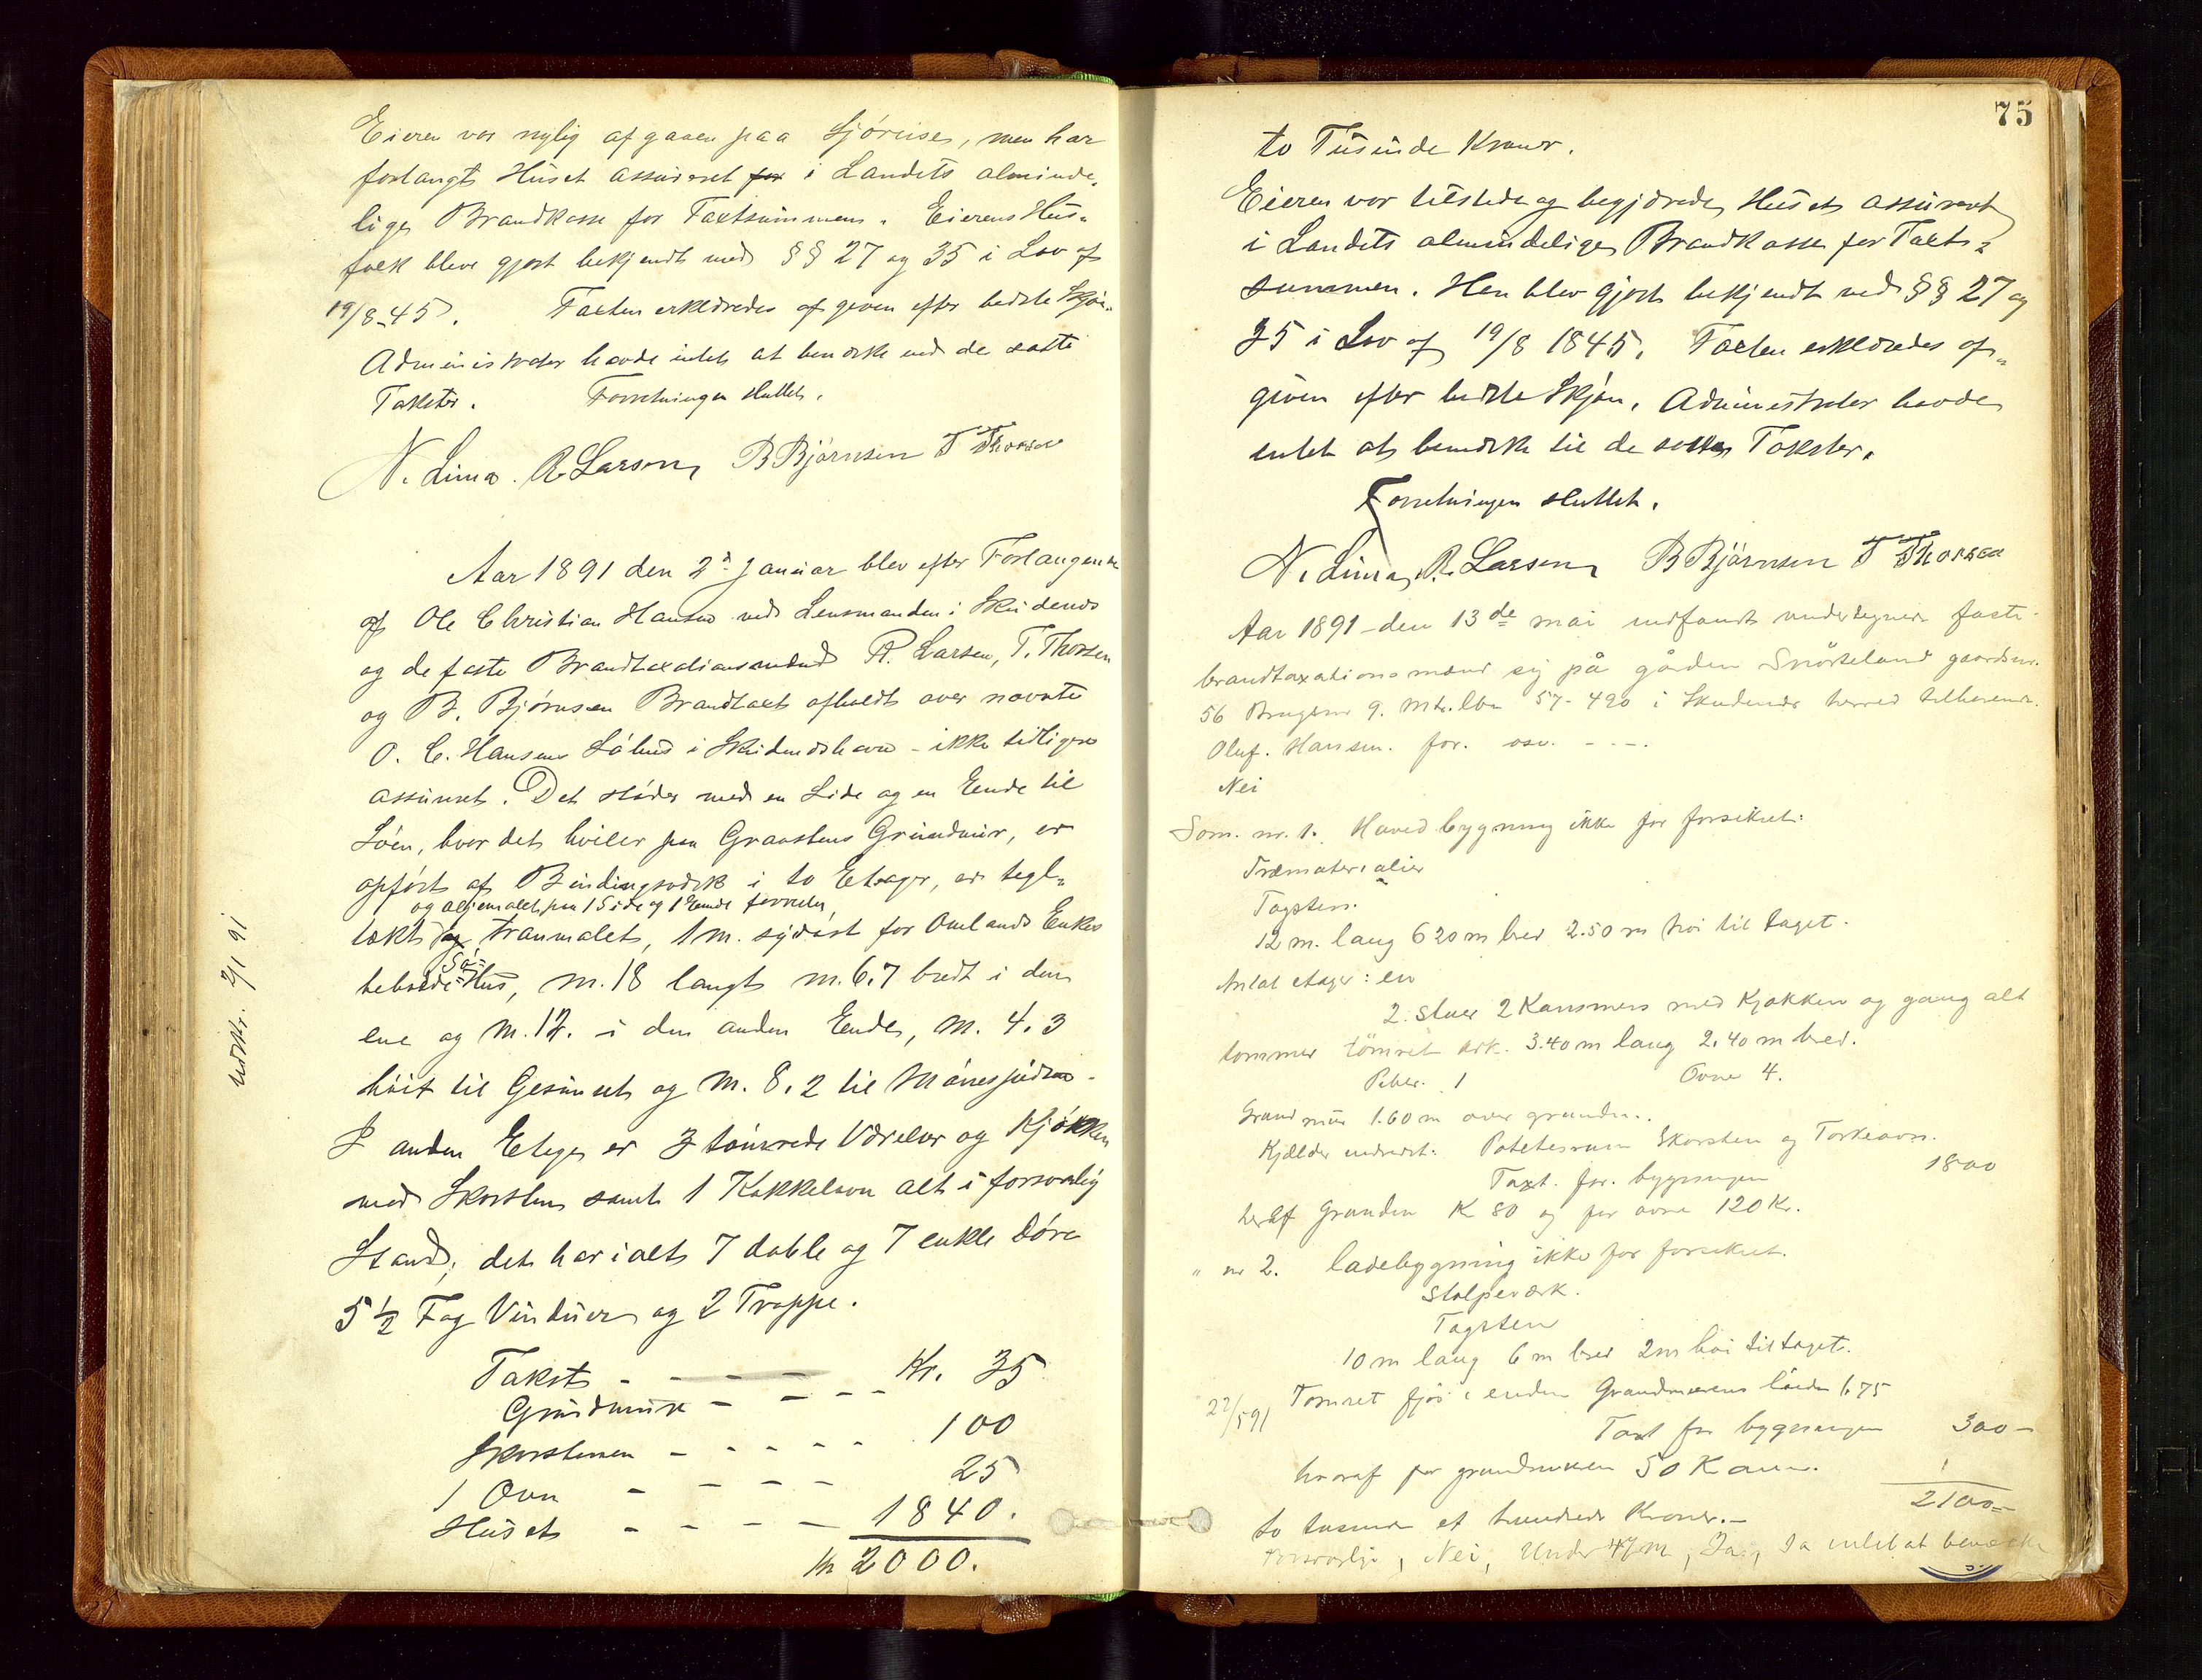 Eieren var nylig afgaaen paa Sjöreise, men har
forlangt Huset assureret for i Landets alminde-
lige Brandkasse for Taxtsummen. Eierens Hus-
folk bleve gjort bekjendt med §§ 27 og 35 i Lov af
19/8-45. Taxten erklæredes afgiven efter bedste Skjön.
Administrator havde intet at bemærke ved de satte
Takster. Forretningen sluttet.
N. Lima. R Larsen, B Bjørnsen T Thorsen
Aar 1891 den 2d Januar blev efter Forlangende
af Ole Christian Hansen ved Lensmanden i Skudenes
og de faste Brandtaxationsmænd R. Larsen, T. Thorsen
og B. Bjørnsen Brandtaxt afholdt over nævnte
O. C. Hansens Söhus i Skudeneshavn - ikke tidligere
assureret. Det stöder med en Side og en Ende til
Söen, hvor det hviler paa Graastens Grundmur, er
opfört af Bindingsværk i to Etager, er tegl-
og oljemalet paa 1 Side og 1 Ende forresten
tækt og tranmalet, 1 m. sydöst for Omlands Enkes
Sö-
beboede Hus, m. 18 langt m. 6.7 bredt i den
ene og m. 12. i den anden Ende, m. 4.3
höit til Gesimset og m. 8.2 til Mönesspidsen.
I anden Etage er 3 tömrede Værelser og Kjökken
med Skorsten samt 1 Kakkelovn alt i forsvarlig
Stand; det har ialt 7 doble og 7 enkle Döre
5 1/2 Fag Vinduer og 2 Trappe.
Takst
Grundmur - - - - Kr. 35
Skorstenen - - - - 100
1 Ovn - - - - 25
Huset - - - - 1840.
Kr 2000.
2/1 91
75
to Tusinde Kroner.
Eieren var tilstede og begjærede Huset assureret
i Landets almindelige Brandkasse for Taxt-
summen. Han blev gjort bekjendt med §§ 27 og
35 i Lov af 19/8 1845. Taxten erklæredes af-
given efter bedste Skjön. Administrator havde
intet at bemærke til de satte Takster.
Forretningen sluttet.
N. Lima, R. Larsen, B Bjørnsen T Thorsen
Aar 1891 - den 13de mai indfandt undertegnede faste
brandtaxationsmænd sig på gården Snörteland gaardsnr.
56 Brugsnr 9. Mtr. lbn 57-420 i Skudenes herred tilhørende
Oluf. Hansen. for. osv. - - -.
Nei
Som. nr. 1. Hovedbygning ikke før forsikret:
Træmaterialier
Tagsten.
12 m. lang 6 20 m bred 2.50 m høi til taget.
Antal etager: en
2. stuer 2 Kammers med Kjøkken og gang alt
tømmer tömret Ark. 3.40 m lang 2.40 m bred.
Piber. 1 Ovne 4.
Grundmur 1.60 m over grunden.
Kjælder indredet: Potetesrum Skorsten og Torkeovn.
Taxt. for. bygningen 1800
heraf Grunden Kr 80 og for ovne 120 Kr.
" nr 2. ladebygning ikke før forsikret.
Stolpeværk.
Tagsten
10 m lang 6 m bred 2 m høi til taget.
22/5 91 Tømret fjøs i enden Grundmurens höide 1.75
Taxt for bygningen 300 -
hvoraf for grundmuren 50 Kroner.
2100 =
to tusind et hundrede Kroner. -
Forsvarlig, Nei, Under 47 m, Ja, Ja intet at bemærke